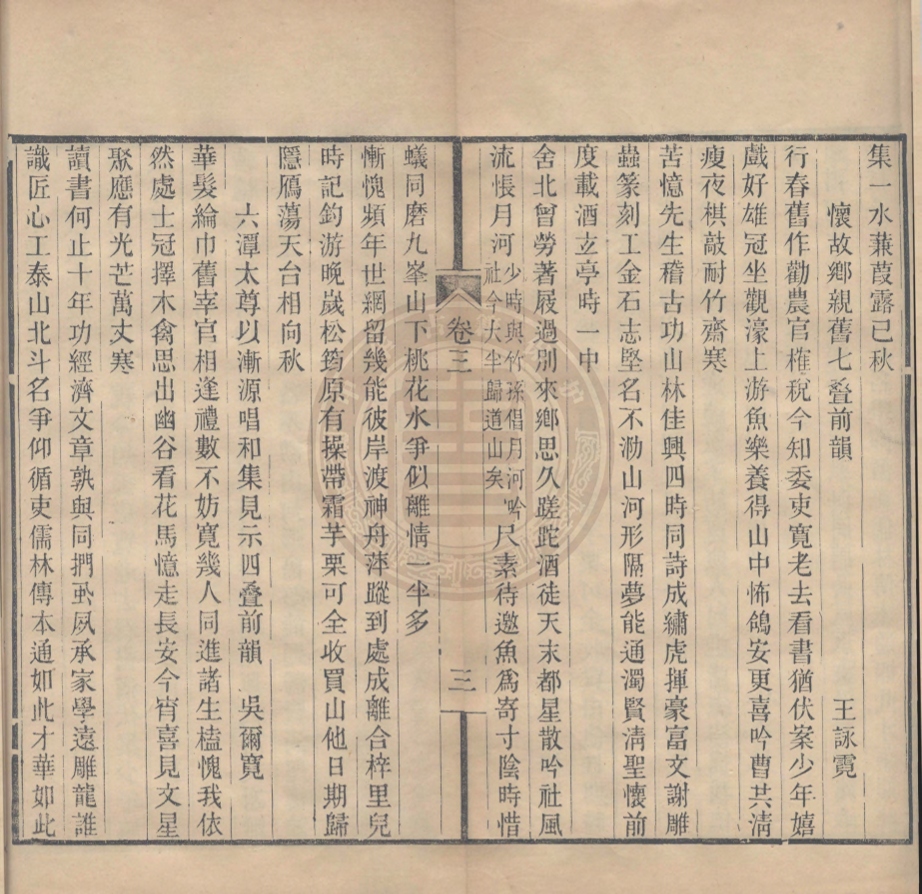 集一水蒹葭露已秋
懷故鄉親舊七疊前韻　王詠霓
行春舊作勸農官榷稅今知委吏寬老去看書猶伏案少年嬉
戲好雄冠坐觀濠上游魚樂養得山中怖鴿安更喜吟曹共淸
瘦夜棋敲耐竹齋寒
苦憶先生稽古功山林佳興四時同詩成繡虎揮豪富文謝雕
蟲篆刻工金石志堅名不泐山河形隔夢能通濁賢淸聖懷前
度載酒玄亭時一中
舍北曾勞著屐過別來鄉思久蹉跎酒徒天末都星散吟社風
流悵月河少時與竹孫倡月河吟社今大半歸道山矣尺素待邀魚爲寄寸陰時惜
卷三
三
蟻同磨九峯山下桃花水爭似離情一半多
慚愧頻年世網留幾能彼岸渡神舟萍蹤到處成離合梓里兒
時記釣游晚歲松筠原有操帶霜芋栗可全收買山他日期歸
隱鴈蕩天台相向秋
六潭太尊以漸源唱和集見示四疊前韻　吳爾寬
華髮綸巾舊宰官相逢禮數不妨寬幾人同進諸生榼愧我依
然處士冠擇木禽思出幽谷看花馬憶走長安今宵喜見文星
聚應有光芒萬丈寒
讀書何止十年功經濟文章孰與同捫虱夙承家學遠雕龍誰
識匠心工泰山北斗名爭仰循吏儒林傳本通如此才華如此